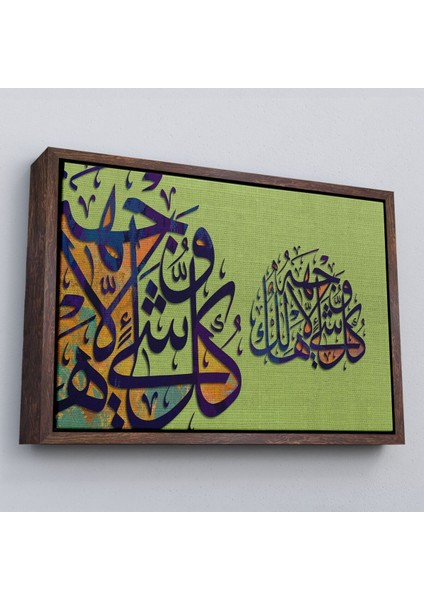 كل شيء هالك إلا وجهه
كل شيء ها إلا وجه